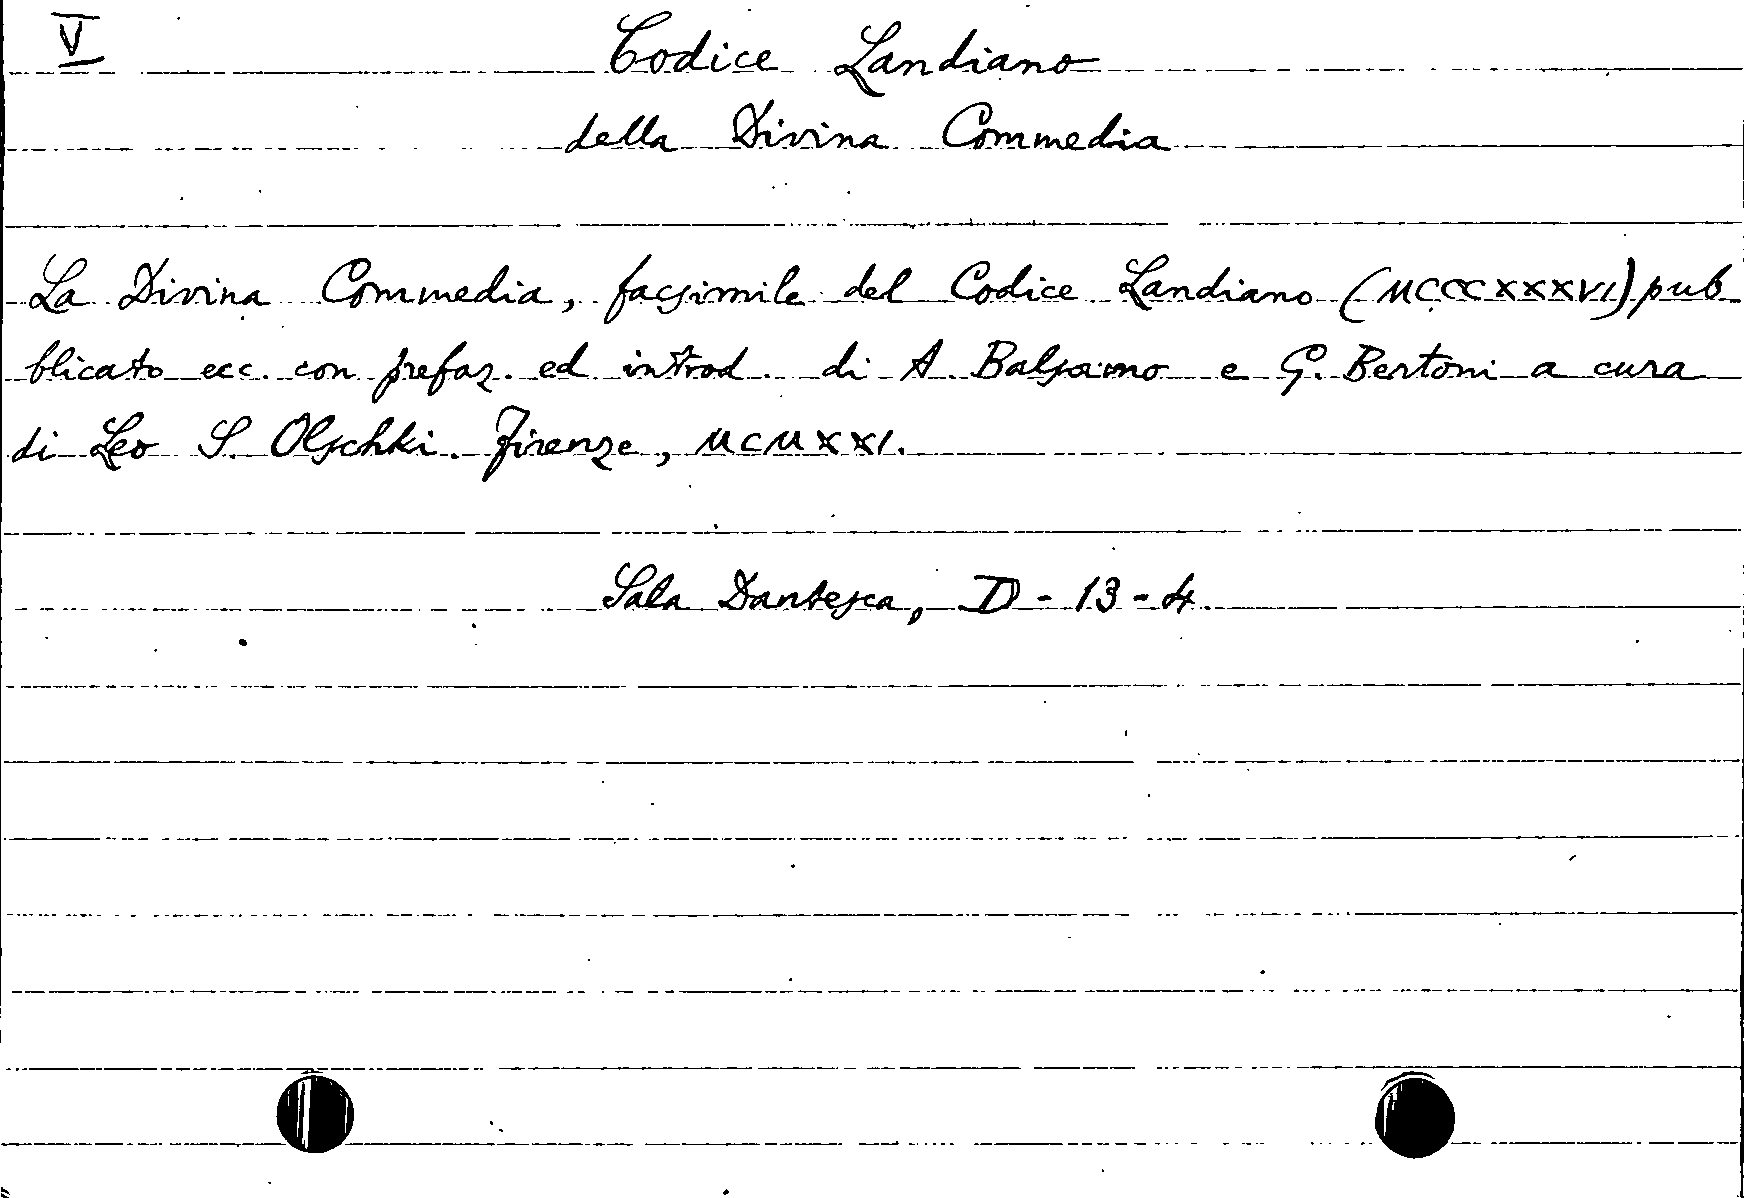 V
Codice Landiano
della Divina Commedia
La Divina Commedia, facsimile del Codice Landiano (MCCCXXXVI) pub
blicato ecc. con prefaz. ed introd. di A. Balsamo e G. Bertoni a cura
di Leo S. Olschki. Firenze, MCMXXI.
Sala Dantesca, D - 13 - 4.